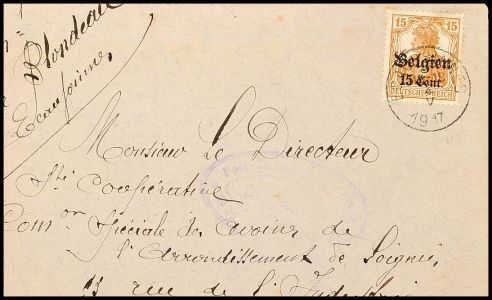 Blondeau
Ecaussinnes
15 15
Belgien
15 Cent.
DEUTSCHES REICH
Monsieur Le Directeur
Sté Coopérative
Comon Spéciale des avoines de
l'arrondissement de Soignies
23 rue de l'Industrie